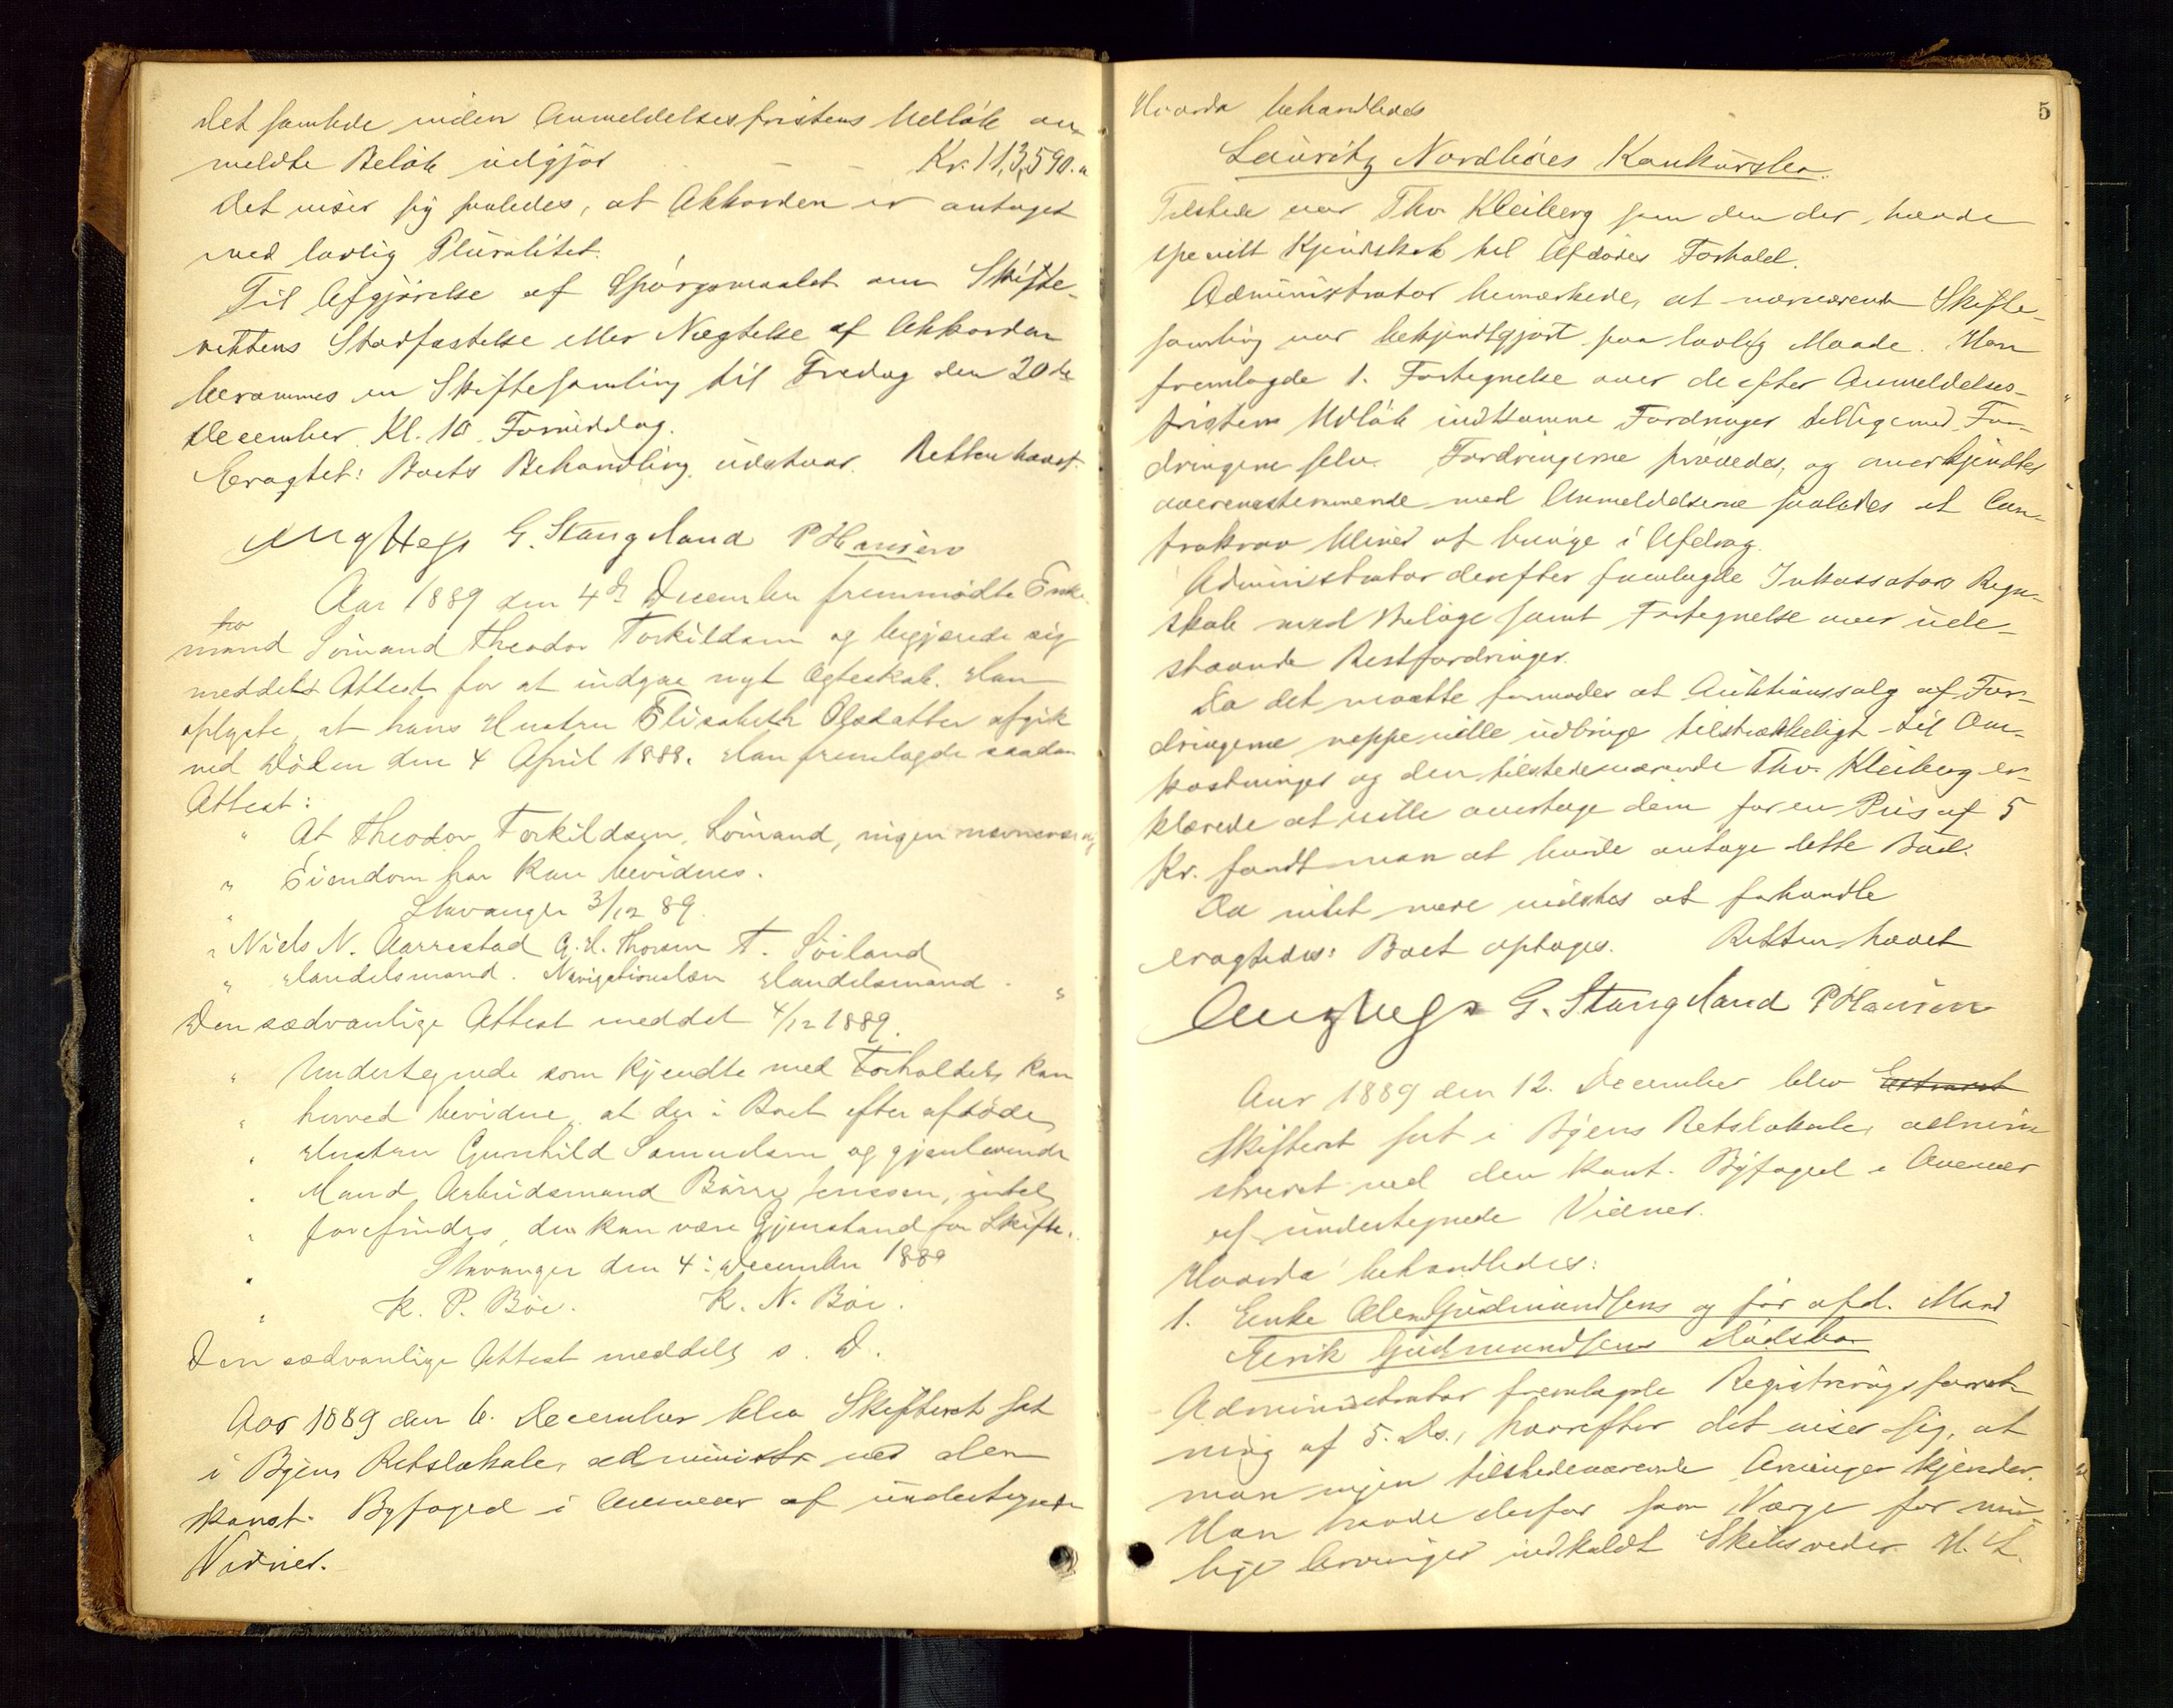 det samlede inden Anmeldelsesfristens Udløb an-
meldte Beløb udgjør - - Kr. 113,590.
Det viser sig saaledes, at Akkorden er antaget
med lovlig Pluralitet.
Til Afgjørelse af Spørgsmaalet om Skifte-
rettens Stadfæstelse eller Nægtelse af Akkorden
berammes en Skiftesamling til Fredag den 20de
December Kl. 10 Formiddag.
Eragtet: Boets Behandling udstaar. Retten hævet.
G. Stangeland P Hansen
Aar 1889 den 4de December fremmødte Enke-
mand Sømand Theodor Torkildsen og begjærede sig
meddelt Attest for at indgaa nyt Ægteskab. Han
oplyste, at hans Hustru Elisabeth Olsdatter afgik
ved Døden den 4 April 1888. Han fremlagde saadan
Attest:
" At Theodor Torkildsen, Sømand, ingen nævneværdig
" Eiendom har kan bevidnes.
" Stavanger 3/12 89.
" Niels N. Aarrestad G. H. Thorsen T. Søiland
" Handelsmand. Navigationslær Handelsmand. "
Den sædvanlige Attest meddelt 4/12 1889.
" Undertegnede som kjendte med Forholdet, kan
" herved bevidne, at der i Boet efter afdøde
" Hustru Gunhild Samuelsen og gjenlevende
" Mand, Arbeidsmand Børre Jenssen, intet
" forefindes, der kan være Gjenstand for Skifte.
" Stavanger den 4: December 1889
" K. P. Bøe. K. N. Bøe.
Den sædvanlige Attest meddelt s. D.
Aar 1889 den 6. December blev Skifteret sat
i Byens Retslokale, administr ved den
konst. Byfoged i Overvær af undertegnede
Vidner.
5
Hvorda behandledes
Lauritz Nordbøes Konkursbo.
Tilstede var Thv. Kleiberg som den der havde
specielt Kjendskab til Afdødes Forhold.
Administrator bemærkede, at nærværende Skifte-
samling var bekjendtgjort paa lovlig Maade. Han
fremlagde 1. Fortegnelse over de efter Anmeldelses-
fristens Udløb indkomne Fordringer tilligemed For-
dringerne selv. Fordringerne prøvedes, og anerkjendtes
overensstemmende med Anmeldelserne saaledes at
bliver at bringe i Afdrag.
Administrator derefter fremlagde Inkassators Regn-
skab med Bilage samt Fortegnelse over ude-
staaende Restfordringer.
Da det maatte formodes at Auktionssalg af For-
dringerne neppe ville udbringe tilstrækkeligt til Om-
kostninger og den tilstedeværende Thv. Kleiberg er-
klærede at ville overtage dem for en Pris af 5
Kr. fandt man at burde antage dette Bud.
Da intet mere vidstes at forhandle
eragtedes: Boet optages. Retten hævet
G. Stangeland P Hansen
Aar 1889 den 12. December blev
Skifteret sat i Byens Retslokale, admini
streret ved den konst. Byfoged i Overvær
af undertegnede Vidner.
Hvorda behandledes:
1. Enke Gudmundsens og før afd. Mand
Eerik Gudmundsens Dødsbo
Administrator fremlagde Registreringsforret-
ning af 5. Ds., hvorefter det viser sig, at
man ingen tilstedeværende Arvinger kjender.
Man havde derfor som Værge for mu-
lige Arvinger indkaldt H. L.